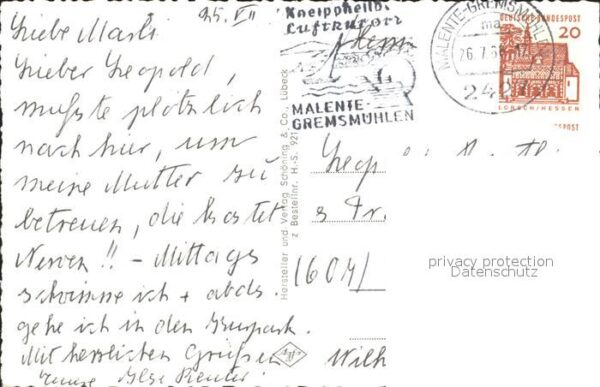 25. VII
Liebe Marli
Lieber Leopold,
mußte plötzlich
nach hier, um
meine Mutter zu
betreuen, die kostet
Nerven!! - Mittags
schwimme ich + abds.
gehe ich in den Kurpark.
Mit herzlichen Grüßen
Ilse Reuter
Hersteller und Verlag Schöning & Co., Lübeck
z Bestellnr. H.-S. 921
Kneippheilb.
Luftkurort
MALENTE-
GREMSMÜHLEN
MALENTE-GREMSMÜHLEN
26.7.6
242
DEUTSCHE BUNDESPOST
20
LORSCH/HESSEN
POST
Herrn
Leop
(604)
Wilh
privacy protection
Datenschutz